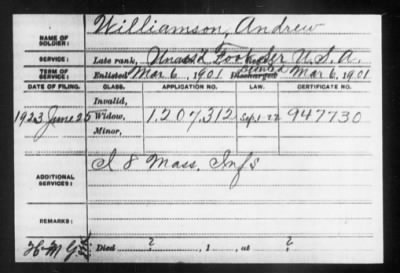 NAME OF SOLDIER: Williamson, Andrew
SERVICE: Late rank, Unass'd U.S.A.
TERM OF SERVICE: Enlisted Mar 6, 1901 Discharged Mar 6, 1901
DATE OF FILING. CLASS. APPLICATION NO. LAW. CERTIFICATE NO.
Invalid,
1923 June 25 Widow, 1.207312 Sept 22 947730
Minor,
ADDITIONAL SERVICES: I 8 Mass. Inf
REMARKS:
Died ?, 1 , at ?